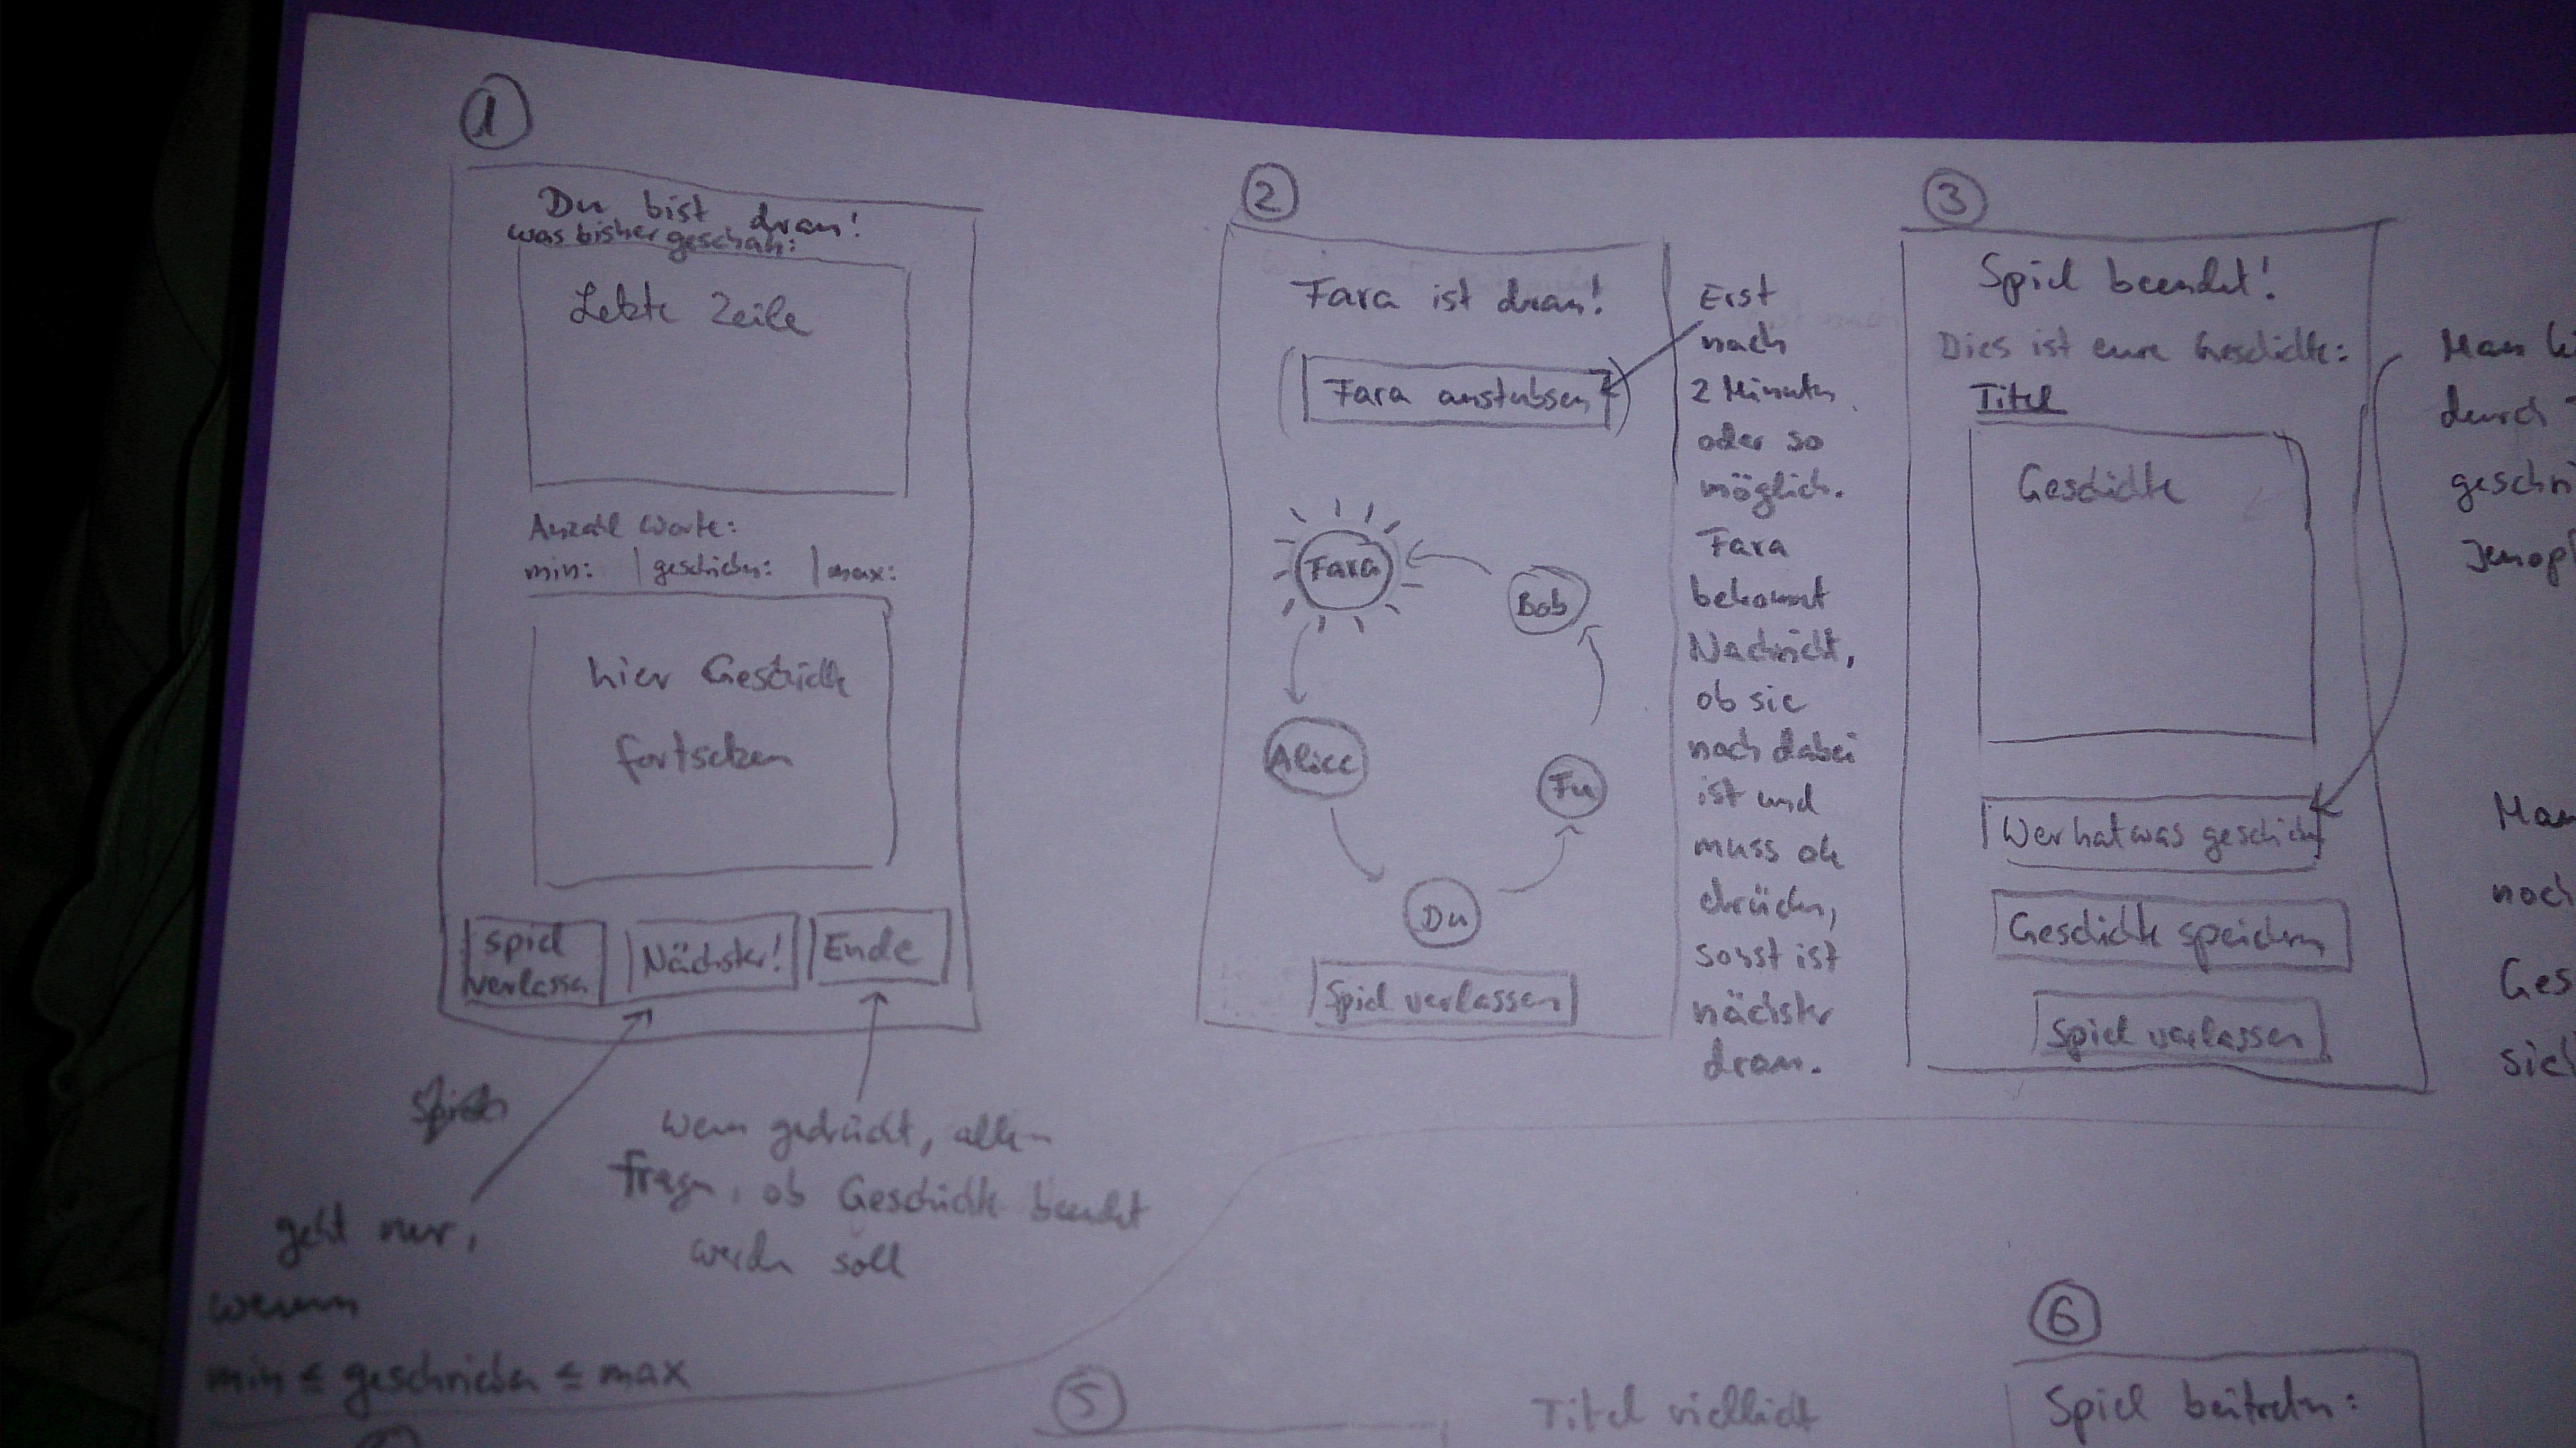 1
Du bist dran!
was bisher geschah:
Letzte Zeile
Anzahl Worte:
min: | geschrieben: | max:
hier Geschichte
fortsetzen
Spiel
verlassen
Nächster!
Ende
geht nur,
wenn
min ≤ geschrieben ≤ max
wenn gedrückt, allen
Fragen, ob Geschichte beendet
werden soll
2
Fara ist dran!
Fara anstubsen
Fara
Bob
Alice
Fu
Du
Spiel verlassen
Erst
nach
2 Minuten
oder so
möglich.
Fara
bekommt
Nachricht,
ob sie
noch dabei
ist und
muss ok
drücken,
sonst ist
nächster
dran.
3
Spiel beendet!
Dies ist eure Geschichte:
Titel
Geschichte
Wer hat was geschrieb
Geschichte speichern
Spiel verlassen
Man
durch
geschri
Man
noch
Ges
sich
5
Titel vielleicht
6
Spiel beitreten: